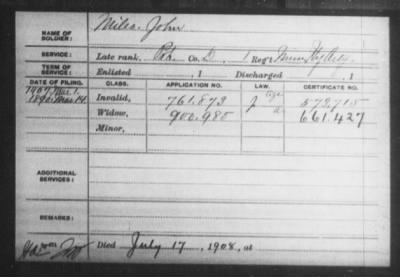 NAME OF SOLDIER: Miles John
SERVICE: Late rank, Pvt Co. D, 1 Reg't Hvy Arty.
TERM OF SERVICE: Enlisted , 1 Discharged , 1
DATE OF FILING. CLASS. APPLICATION NO. LAW. CERTIFICATE NO.
1890
Invalid, 761.873 age 579,715
Widow, 900.980 661.427
Minor,
ADDITIONAL SERVICES:
REMARKS:
Died July 17, 1908, at